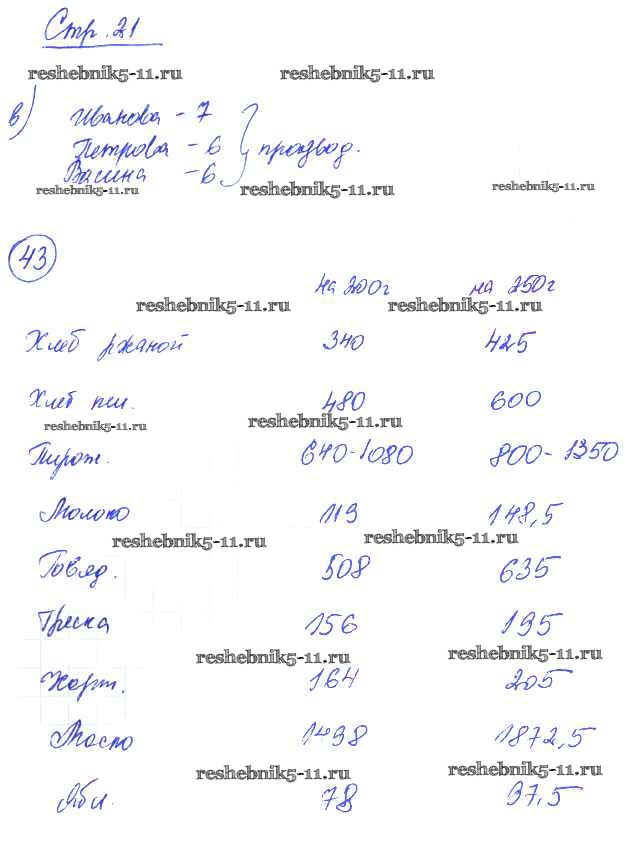 Стр. 21
reshebnik5-11.ru reshebnik5-11.ru
в) Иванова - 7
Петрова - 6 производ.
Васина - 6
reshebnik5-11.ru reshebnik5-11.ru reshebnik5-11.ru
43
на 200г на 250г
reshebnik5-11.ru reshebnik5-11.ru
Хлеб ржаной 340 425
Хлеб пш. 480 600
reshebnik5-11.ru reshebnik5-11.ru
Пирож. 640-1080 800-1350
Молоко 119 148,5
reshebnik5-11.ru reshebnik5-11.ru
Говяд. 508 635
Треска 156 195
reshebnik5-11.ru reshebnik5-11.ru
Карт. 164 205
Масло 1498 1872,5
reshebnik5-11.ru reshebnik5-11.ru
Ябл. 78 97,5